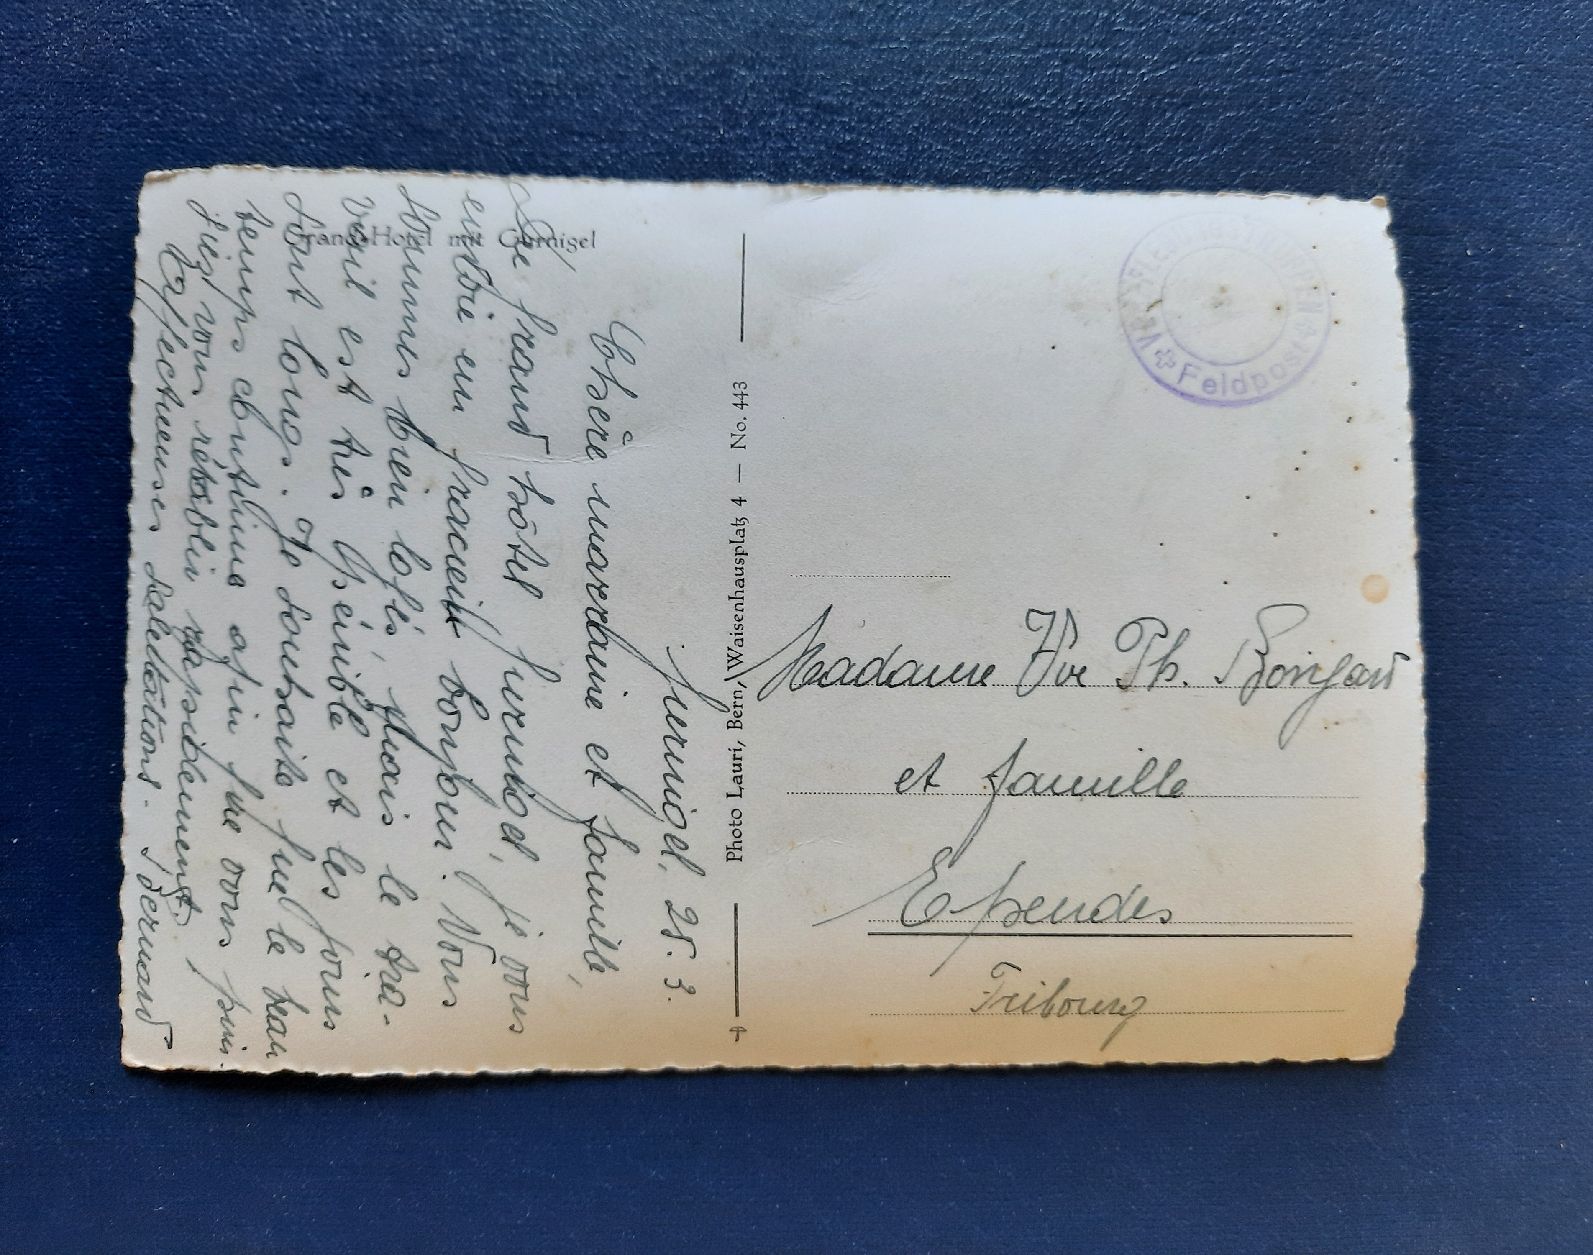 Grand-Hotel mit Gurnigel
Gurnigel, 25. 3.
Chère marraine et famille,
Du grand hôtel Gurnigel, je vous
envoie un gracieux bonjour. Nous
sommes bien logés, mais le tra-
vail est très pénible et les jours
sont longs. Je souhaite que le beau
temps continue afin que vous puis-
siez vous rétablir rapidement.
Affectueuses salutations. Bernard
Photo Lauri, Bern, Waisenhausplatz 4 — No. 443
Feldpost
Madame Vve Ph. Bongard
et famille
Ependes
Fribourg